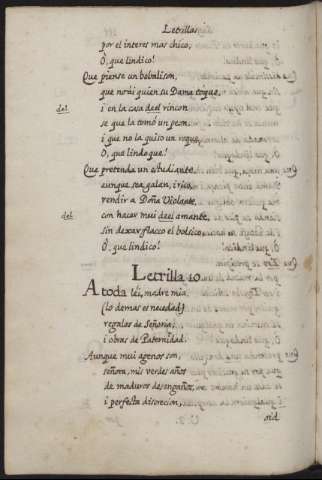 Letrillas
por el interes mas chico,
O, que lindico!
Que piense un bobalicon,
que no ái quien su Dama toque,
del i en la casa deel rincon
se que la tomò un peon,
i que no la quiso un roque,
O, que lindoque!
Que pretenda un estudiante,
aunque sea galan, i rico,
rendir a Doña Violante,
del con hacer mui deel amante,
sin dexar flacco el bolsico,
O, que lindico!
Letrilla 10.
A toda léi, madre mia,
(lo demas es necedad)
regalos de Señoria,
i obras de Paternidad.
Aunque mui agenos son,
señora, mis verdes años
de maduros desengaños,
i perfecta discrecion,
oid